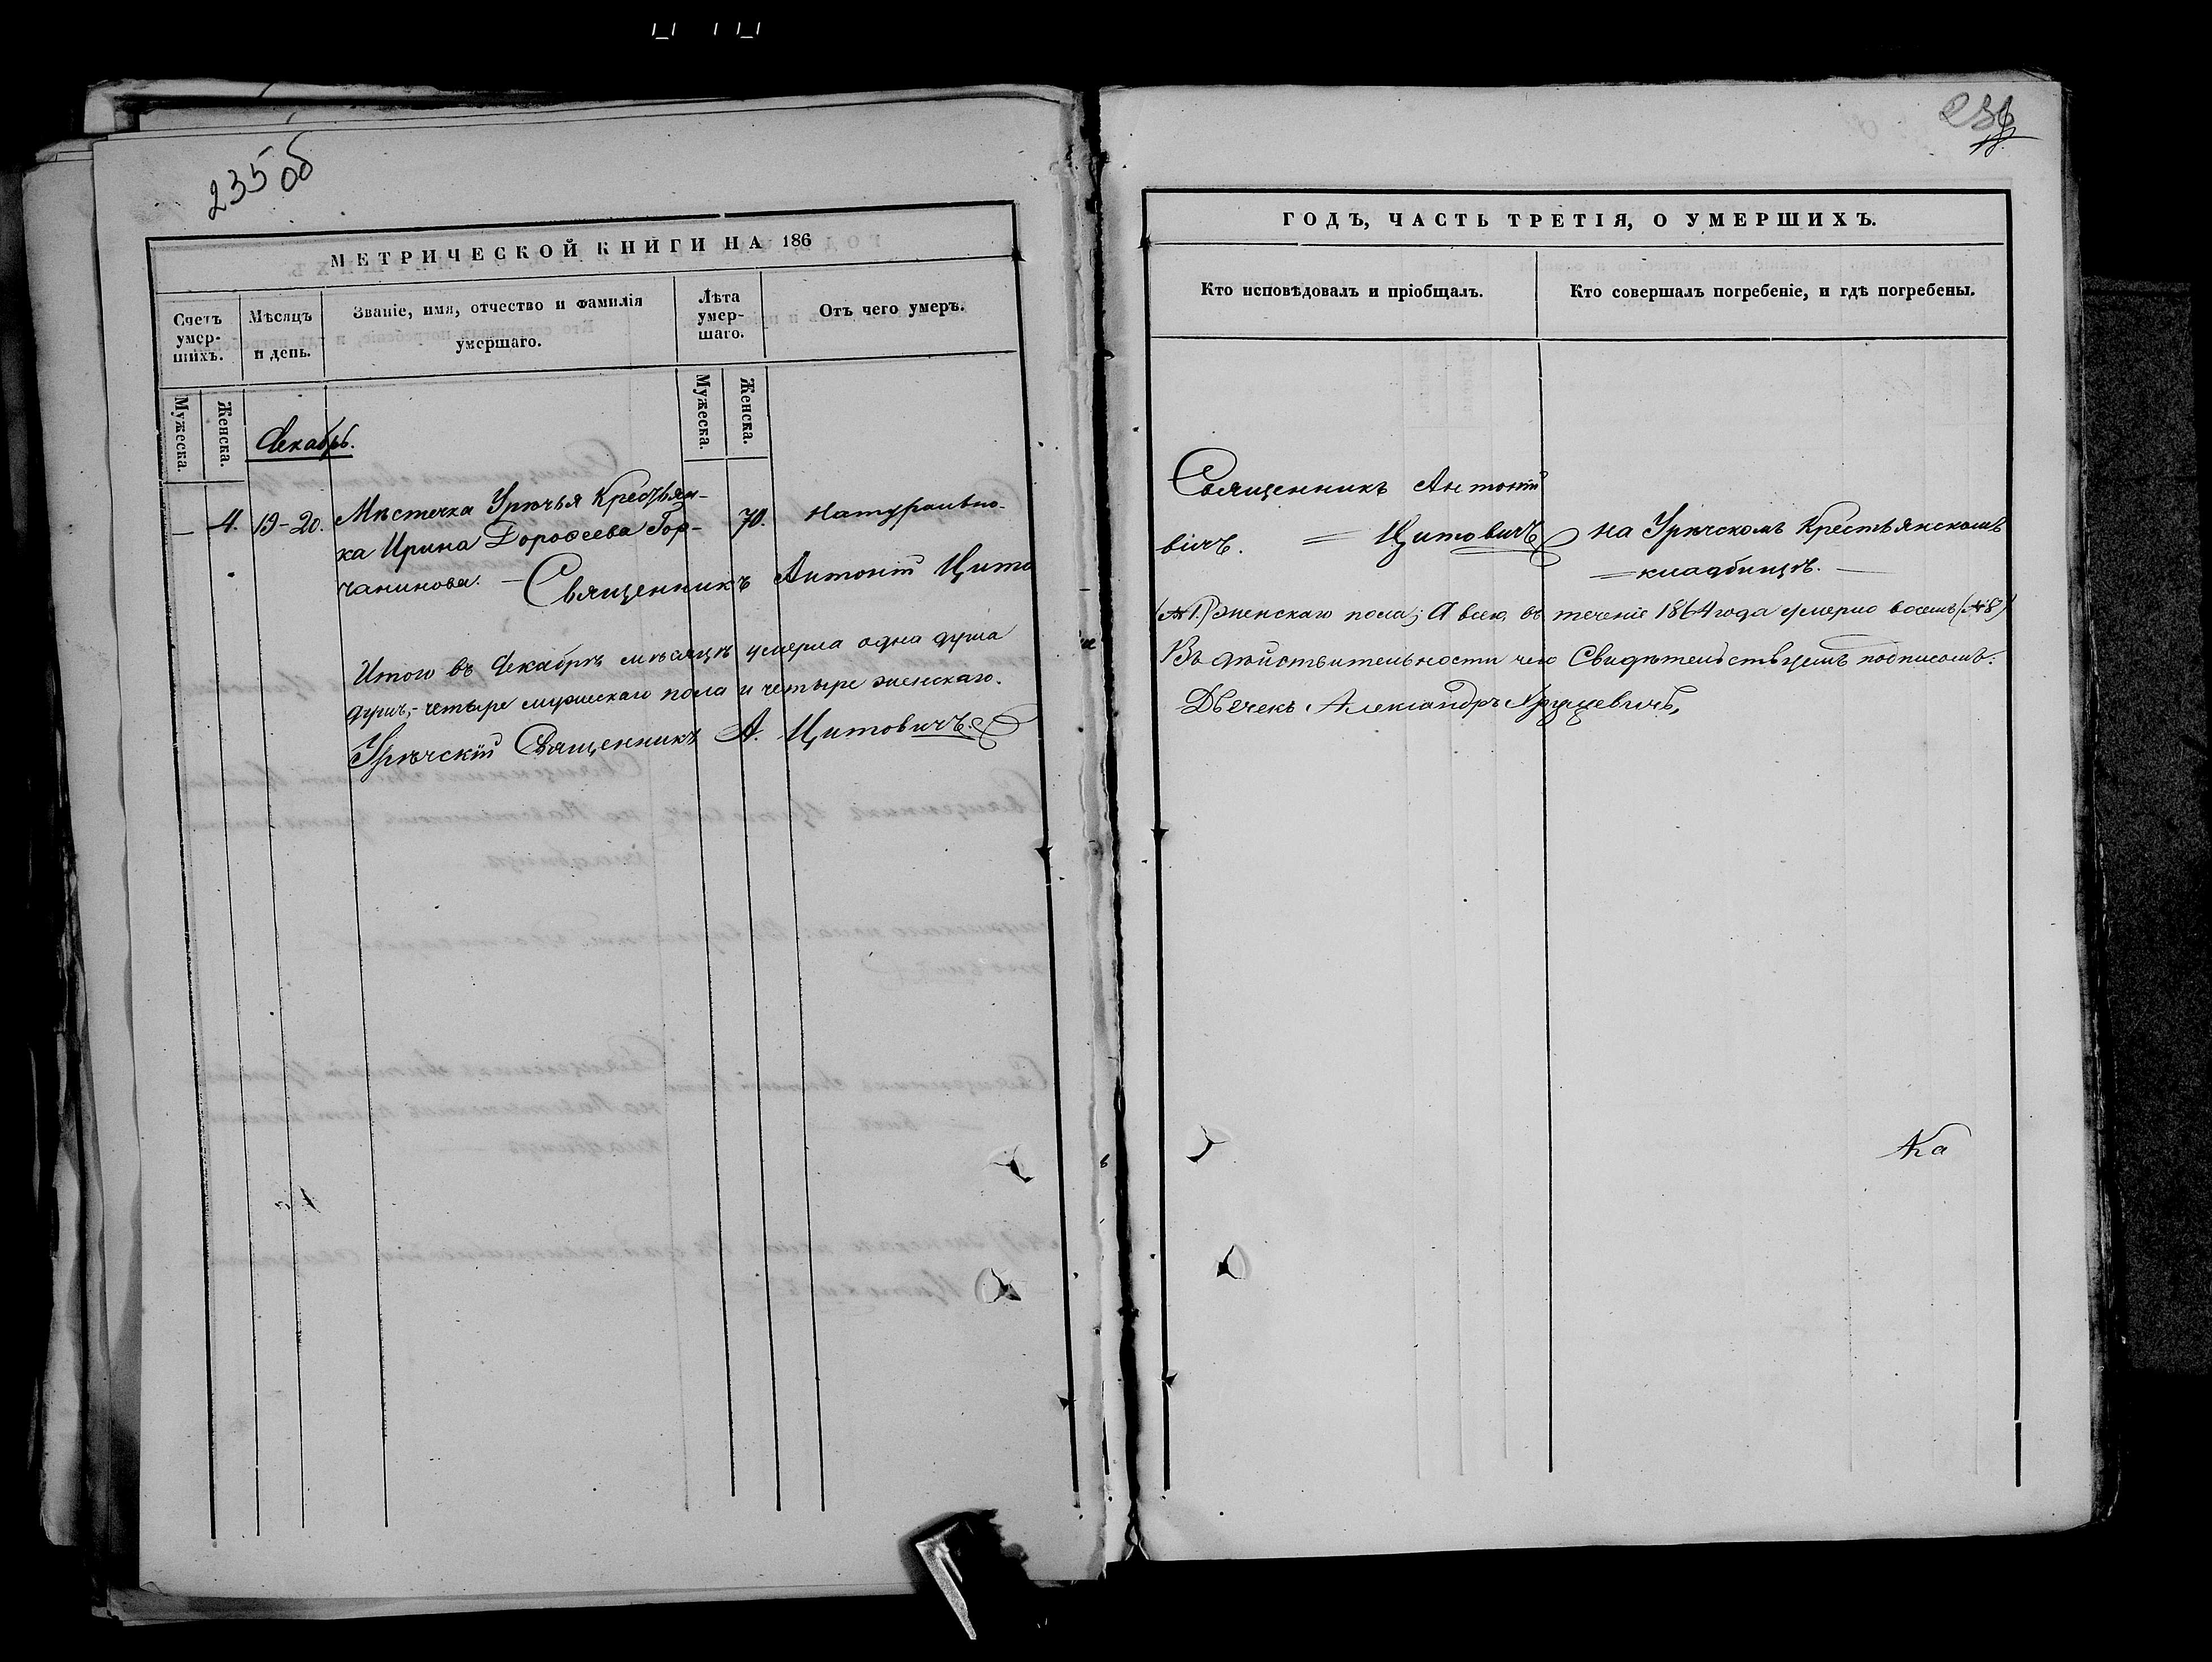 235 об
МЕТРИЧЕСКОЙ КНИГИ НА 186
Счетъ умер-шихъ.
Мѣсяцъ и день.
Званіе, имя, отчество и фамилія умершаго.
Лѣта умер-шаго.
Отъ чего умеръ.
Мужеска.
Женска.
Мужеска.
Женска.
Декабрь.
— 4. 19-20. Мѣстечка Урѣчья Крестьян- 70. Натурально.
ка Ирина Дороѳеева Гор-
чанинова. — Священникъ Антоній Цито
Итого въ Декабрѣ мѣсяцѣ умерла одна душа
душъ,- четыре мужескаго пола и четыре женскаго.
Урѣчскій Священникъ А. Цитовичъ.
236
ГОДЪ, ЧАСТЬ ТРЕТІЯ, О УМЕРШИХЪ.
Кто исповѣдовалъ и пріобщалъ.
Кто совершалъ погребеніе, и гдѣ погребены.
Священникъ Антоній
= Цитовичъ
вичъ.
на Урѣчскомъ Крестьянскомъ
= кладбищѣ. —
(№ 1.) женскаго пола; А всего въ теченіе 1864 года умерло восемь (№ 8)
Въ дѣйствительности чего Свидѣтельствуемъ подписомъ.
Дьячекъ Александръ